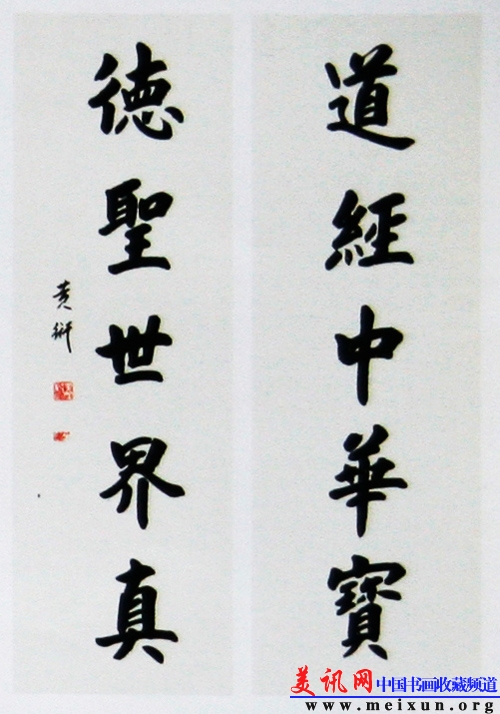 道經中華寶
德聖世界真
美讯网 中国书画收藏频道
www.meixun.org